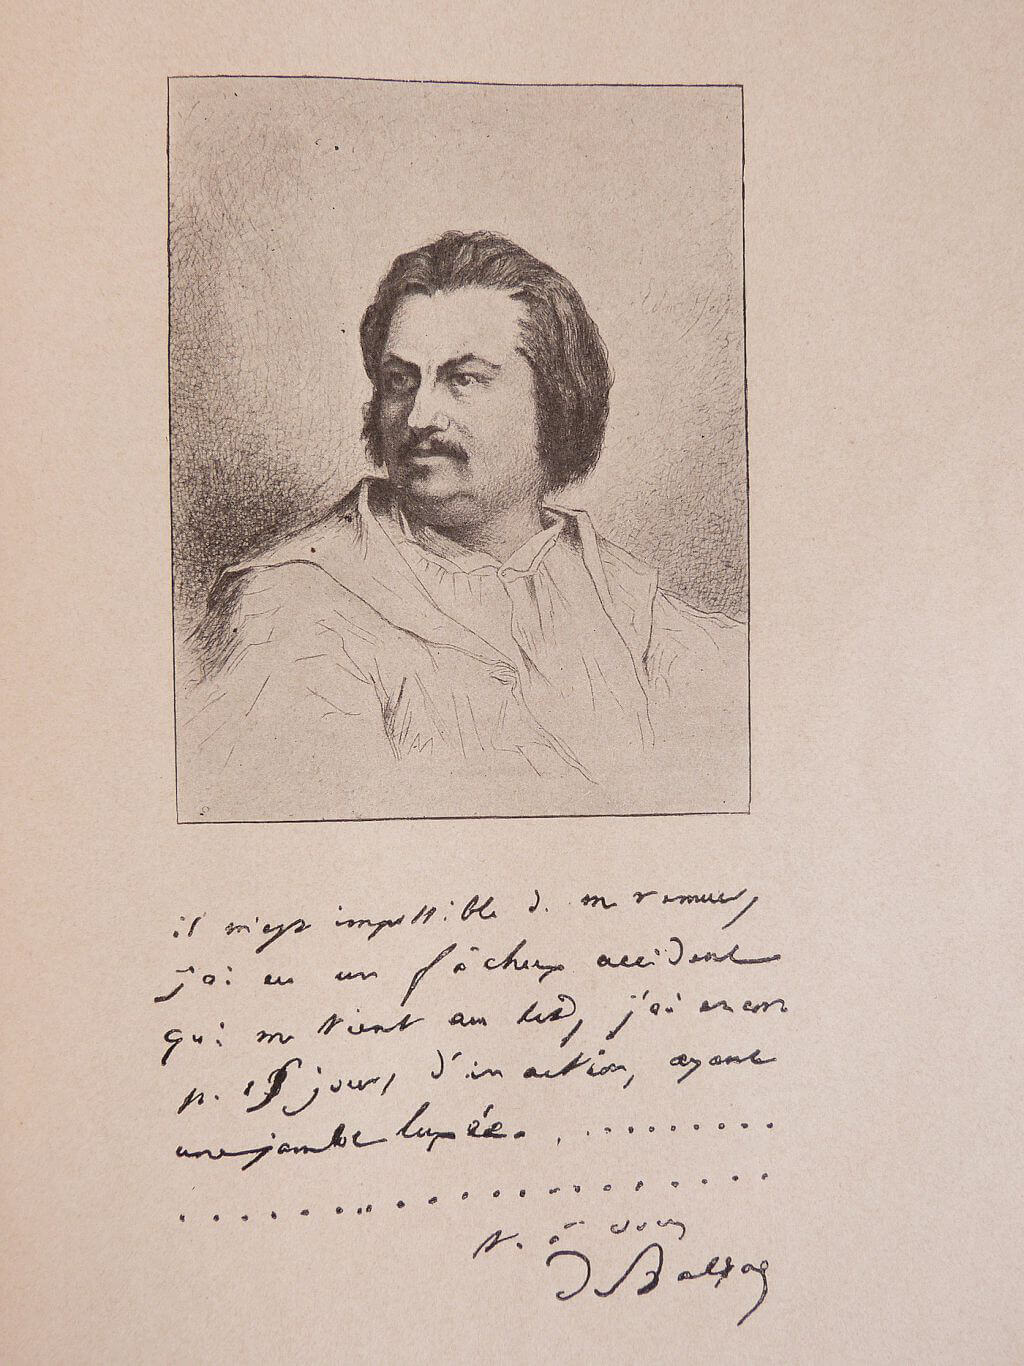 il m'est impossible d. me remuer,
j'ai eu un fâcheux accident
qui me tient au lit, j'ai encore
p. 15 jours d'inaction, ayant
une jambe luxée. . . . . . . . . . .
. . . . . . . . . . . . . . . . . .
t. à vous
d Balzac